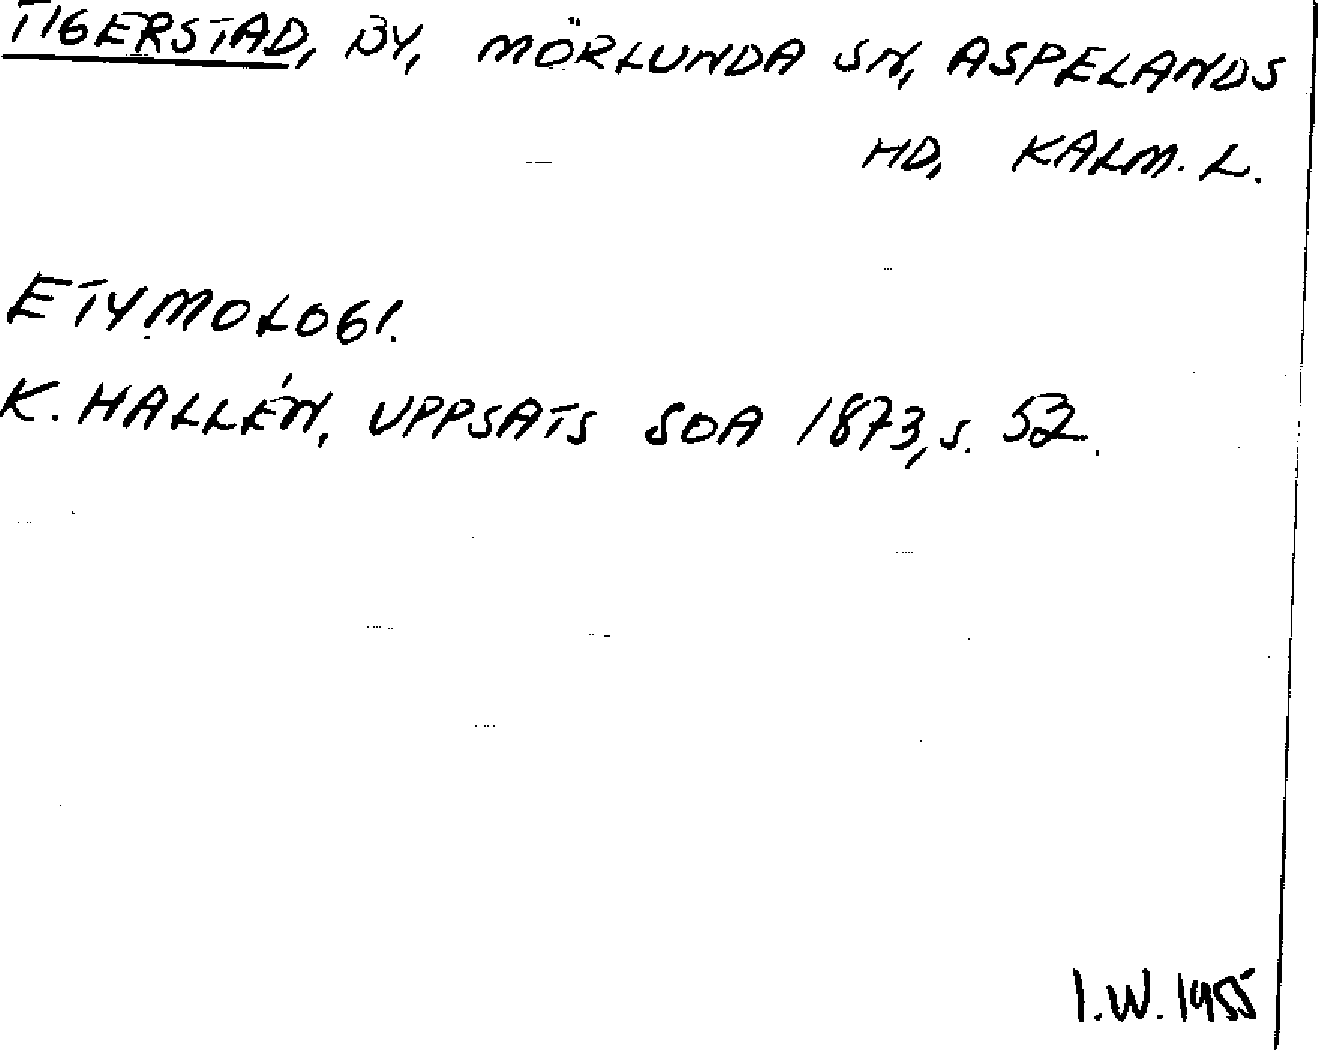 TIGERSTAD, BY, MÖRLUNDA SN, ASPELANDS
HD, KALM. L.
ETYMOLOGI.
K. HALLÉN, UPPSATS SOA 1873, S. 52.
I.W. 1955